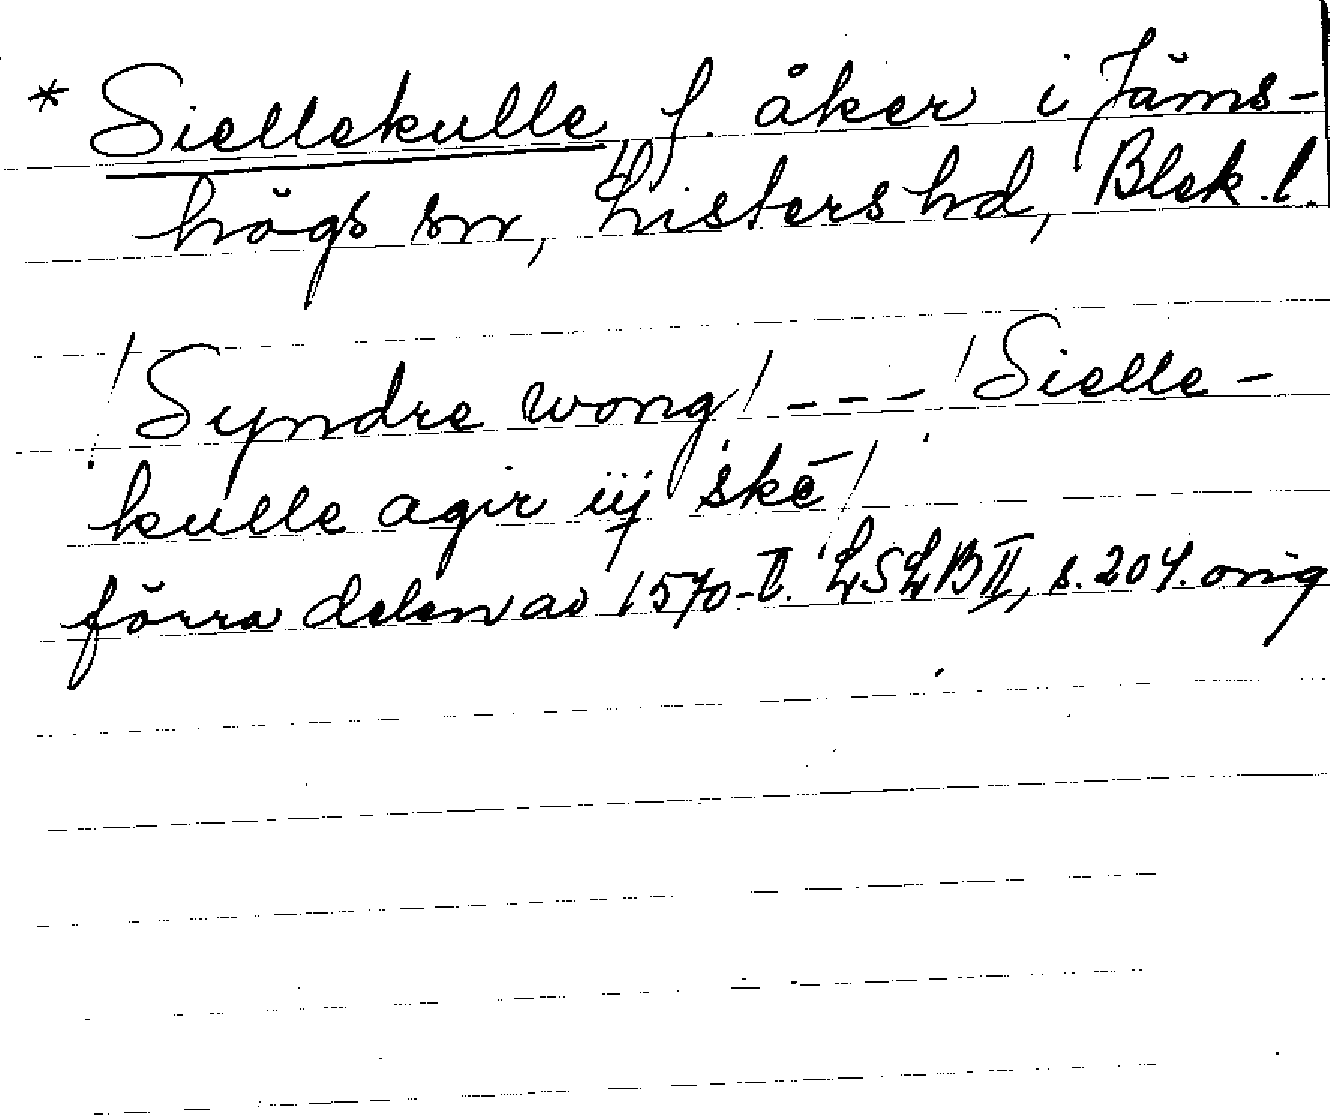 * Siellekulle, f. åker i Jäms-
högs sn, Listers hd, Blek. l.
/Syndre wong/ --- /Sielle-
kulle agir iij skē/
förra delen av 1570-t. LSLB II, s. 204. orig